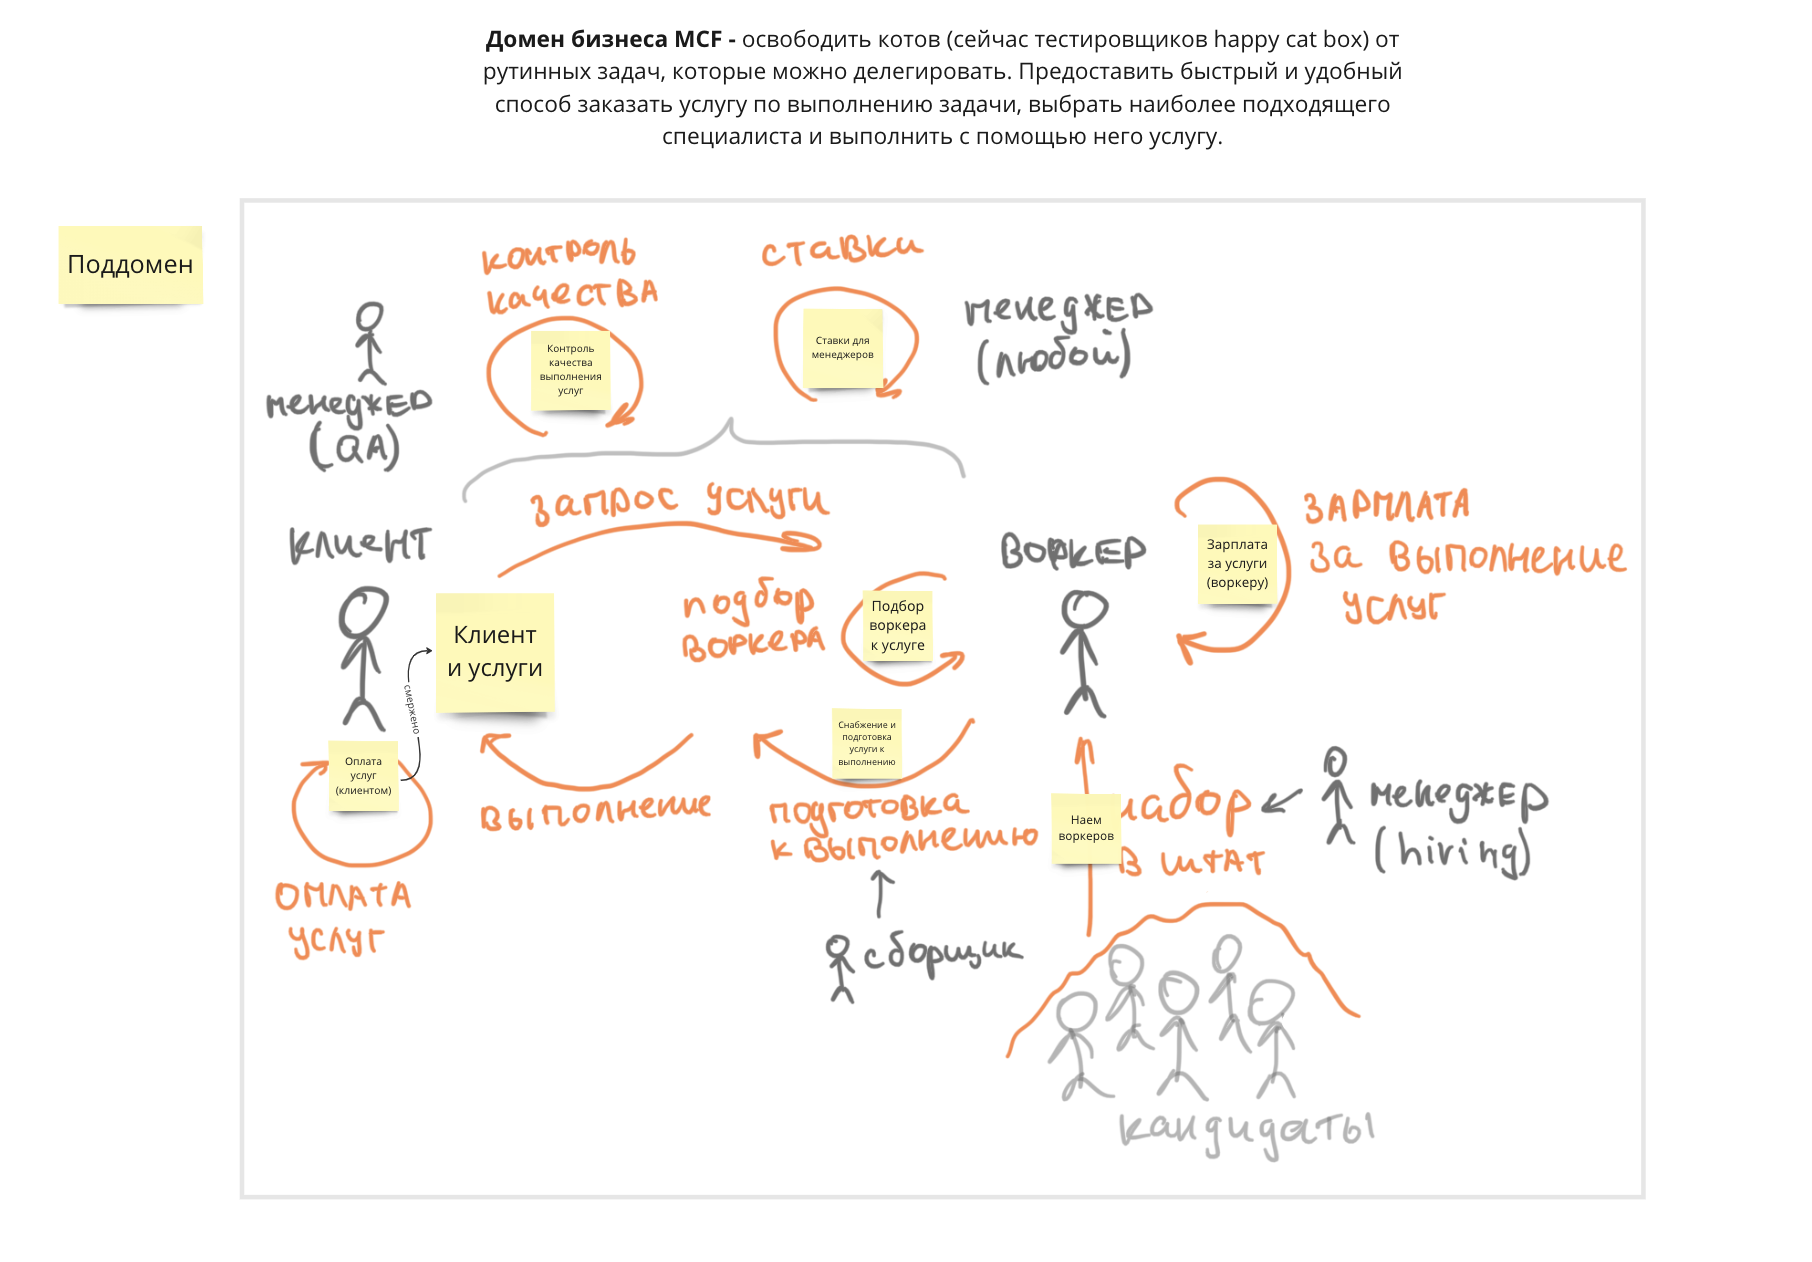 Домен бизнеса MCF - освободить котов (сейчас тестировщиков happy cat box) от
рутинных задач, которые можно делегировать. Предоставить быстрый и удобный
способ заказать услугу по выполнению задачи, выбрать наиболее подходящего
специалиста и выполнить с помощью него услугу.
Поддомен
контроль
качества
Контроль
качества
выполнения
услуг
ставки
Ставки для
менеджеров
менеджер
(любой)
менеджер
(QA)
запрос услуги
клиент
Клиент
и услуги
смержено
Оплата
услуг
(клиентом)
оплата
услуг
выполнение
подбор
воркера
Подбор
воркера
к услуге
Снабжение и
подготовка
услуги к
выполнению
подготовка
к выполнению
сборщик
воркер
Зарплата
за услуги
(воркеру)
зарплата
за выполнение
услуг
Наем
воркеров
набор
в штат
менеджер
(hiring)
кандидаты